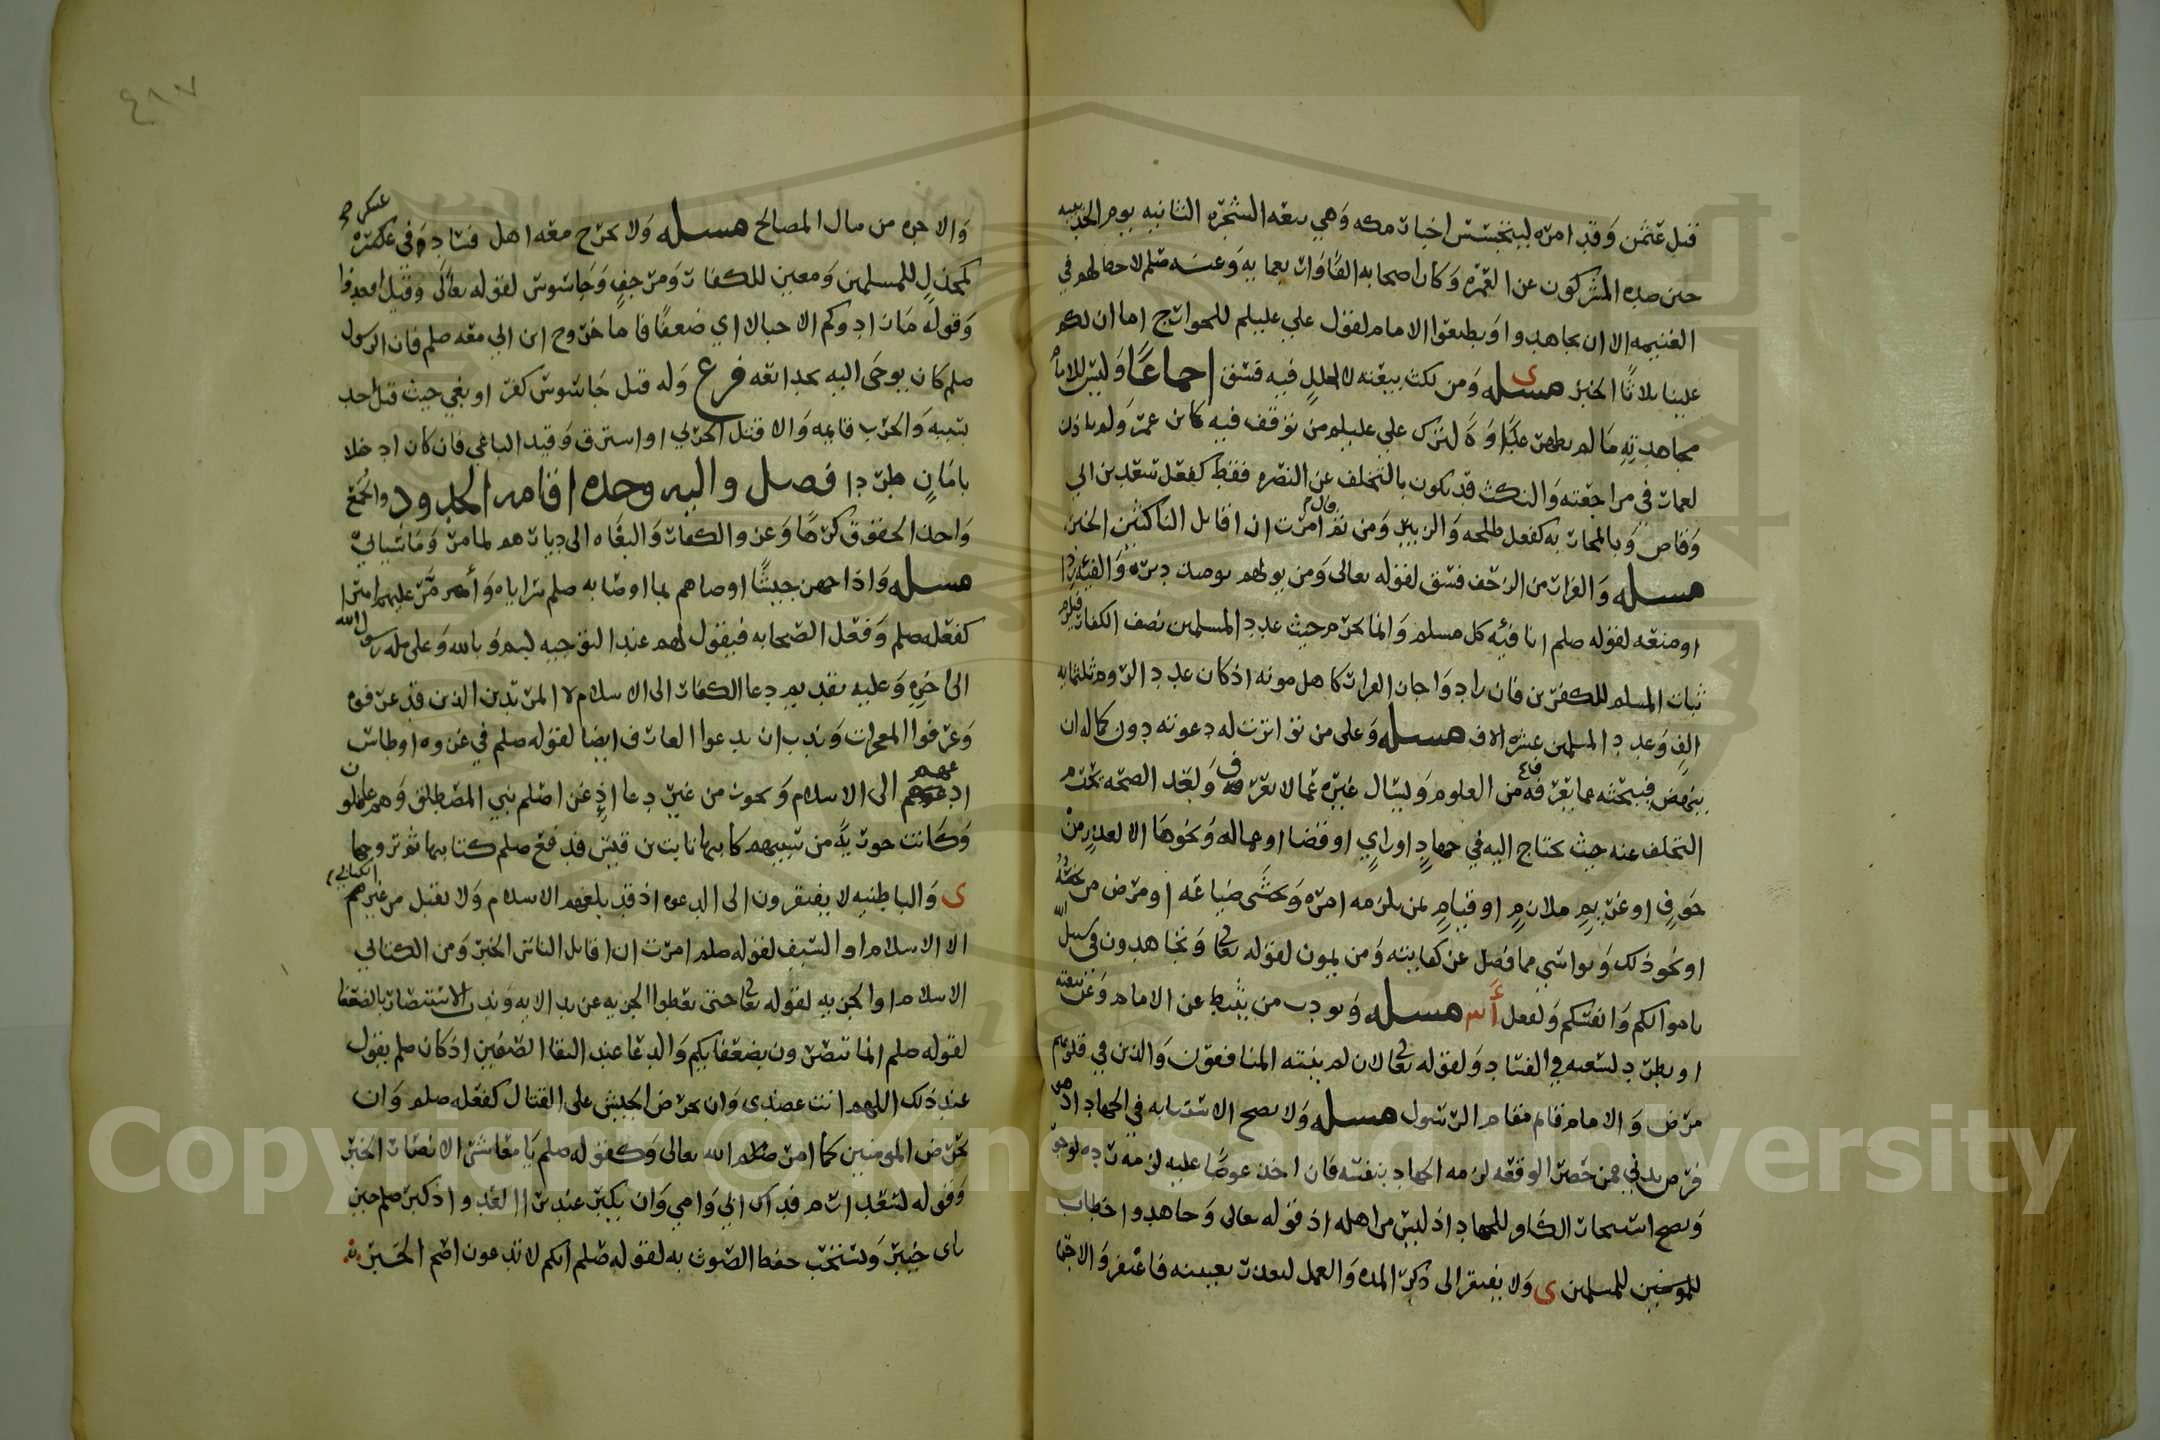 قتل عثمن وقد امره ليتجسس اخبار مكه وهي بيعه الشجره الثانيه يوم الحديبيه
حين صده المشركون عن العمره وكان اصحابه الفا وار بعمايه وعنه صلم لا حظ لهم في
الغنيمه الا ان يجاهدوا او يطيعوا الامام لقول علي عليلم للخوارج اما ان لكم
علينا ثلاثا الخبر مسله ى ومن نكث بيعته لا لخلل فيه فسق اجماعا وليس للامام
مجاهدته ما لم يظهر علىا وه لترك علي عليلم من توقف فيه كابن عمر ولم ياذن
لعمار في مراجعته والنكث قد يكون بالتخلف عن النصره فقط كفعل سعد بن ابي
وقاص وبالمحاربه كفعل طلحه والزبير ومن ثم قال م امرت ان اقاتل الناكثين الخبر
مسله والفرار من الزحف فسق لقوله تعالى ومن يولهم يوميذ دبره والفئه
او منعه لقوله صلم انا فيه كل مسلم وانما يحرم حيث عدد المسلمين نصف الكفار فيلزم
ثبات المسلم للكفرين فان زادوا جاز الفرار كاهل موته اذ كان عدد الروم ثلثمايه
الف وعدد المسلمين عشره الاف مسله وعلى من تواترت له دعوته دون كماله ان
ينهض فيبحثه عما يعرفه من العلوم ويسال غيره عما لا يعرف وبعد الصحه يحرم
التخلف عنه حيث يحتاج اليه في جهاد او راي او قضا او جماله ونحوها الا لعذر من
خوف او غريم ملازم او قيام بمن يلزمه امره ويخشى ضياعه او مرض
او نحو ذلك ويواسي مما فضل عن كفايته ومن يمون لقوله تعا وتجاهدون في سبيل الله
باموالكم وانفسكم ولفعل مسله ويودب من يثبط عن الامام
او يطرد لسعيه في الفساد ولقوله تعا لان لم ينته المنافقون والذين في قلوبهم
مرض والامام قام مقام الرسول مسله ولا يصح الاستنابه في الجهاد اذ هو
فرض بدني فمن حضر الوقعه لزمه الجهاد بنفسه فان اخذ عوضا عليه لزمه رده
ويصح استيجار الكافر للجهاد اذ ليس من اهله اذ قوله تعالى وجاهدوا خطاب
للمومنين للمسلمين ى ولا يفتقر الى ذكر المده والعمل لتعذر تعيينه فاغتفر والاجما
والاجره من مال المصالح مسله ولا يخرج معه اهل فساد في عسكره عسكر
كمخذل للمسلمين ومعين للكفار ومرجف وجاسوس لقوله تعالى وقيل اقعدوا
وقوله ما زادوكم الا خبالا اي ضعفا فاما خروج ابن ابي معه صلم فان الرسول
صلم كان يوحى اليه بخدايعه فرع وله قتل جاسوس كفر او بغي حيث قتل احد
بسببه والحرب قايمه والا قتل الحربي او استرق وقيد الباغي فان كان ادخلا
بامان طردا فصل واليه وحده اقامه الحدود والجمع
واخذ الحقوق كرها وعزو الكفار والبغاه الى ديارهم لما مر وما سياتي
مسله واذا جهز جيشا اوصاهم بما اوصا به صلم سراياه وأمر عليهم اميرا
كفعله صلم وفعل الصحابه فيقول لهم عند التوجيه بسم وبالله وعلى مله رسول الله
الى اخره وعليه تقديم دعا الكفار الى الاسلام لا المرتدين الذين قد عرفوه
وعرفوا المعجزات وندب ان يدعوا العارف ايضا لقوله صلم في غزوه اوطاس
ادعوهم الى الاسلام ويجوز من غير دعا اذ غزا صلم بني المصطلق وهم غافلون
وكانت جويريه من سبيهم كاتبها ثابت بن قيس فدفع صلم كتابتها ثم تزوجها
ى والباطنيه لا يفتقرون الى الدعوه اذ قد بلغهم الاسلام ولا يقبل من غير الكتابي
الا الاسلام او السيف لقوله صلم امرت ان اقاتل الناس الخبر ومن الكتابي
الاسلام او الجزيه لقوله تعا حتى يعطوا الجزيه عن يد الايه وندب الاستنصار بالضعفا
لقوله صلم انما تنصرون بضعفايكم والدعا عند التقا الصفين اذ كان صلم يقول
عند ذلك اللهم انت عضدي وان يحرض الجيش على القتال كفعله صلم وان
يحرض المومنين كما امر الله تعالى وكقوله صلم يا معاشر الانصار الخبر
وقوله لسعد ارم فداك ابي وامي وان يكبر عند العدو اذ كبر صلم حين
راى خيبر ويستحب خفض الصوت به لقوله صلم انكم لا تدعون اصم الخبر
٤٨٧
Copyright © King Saud University